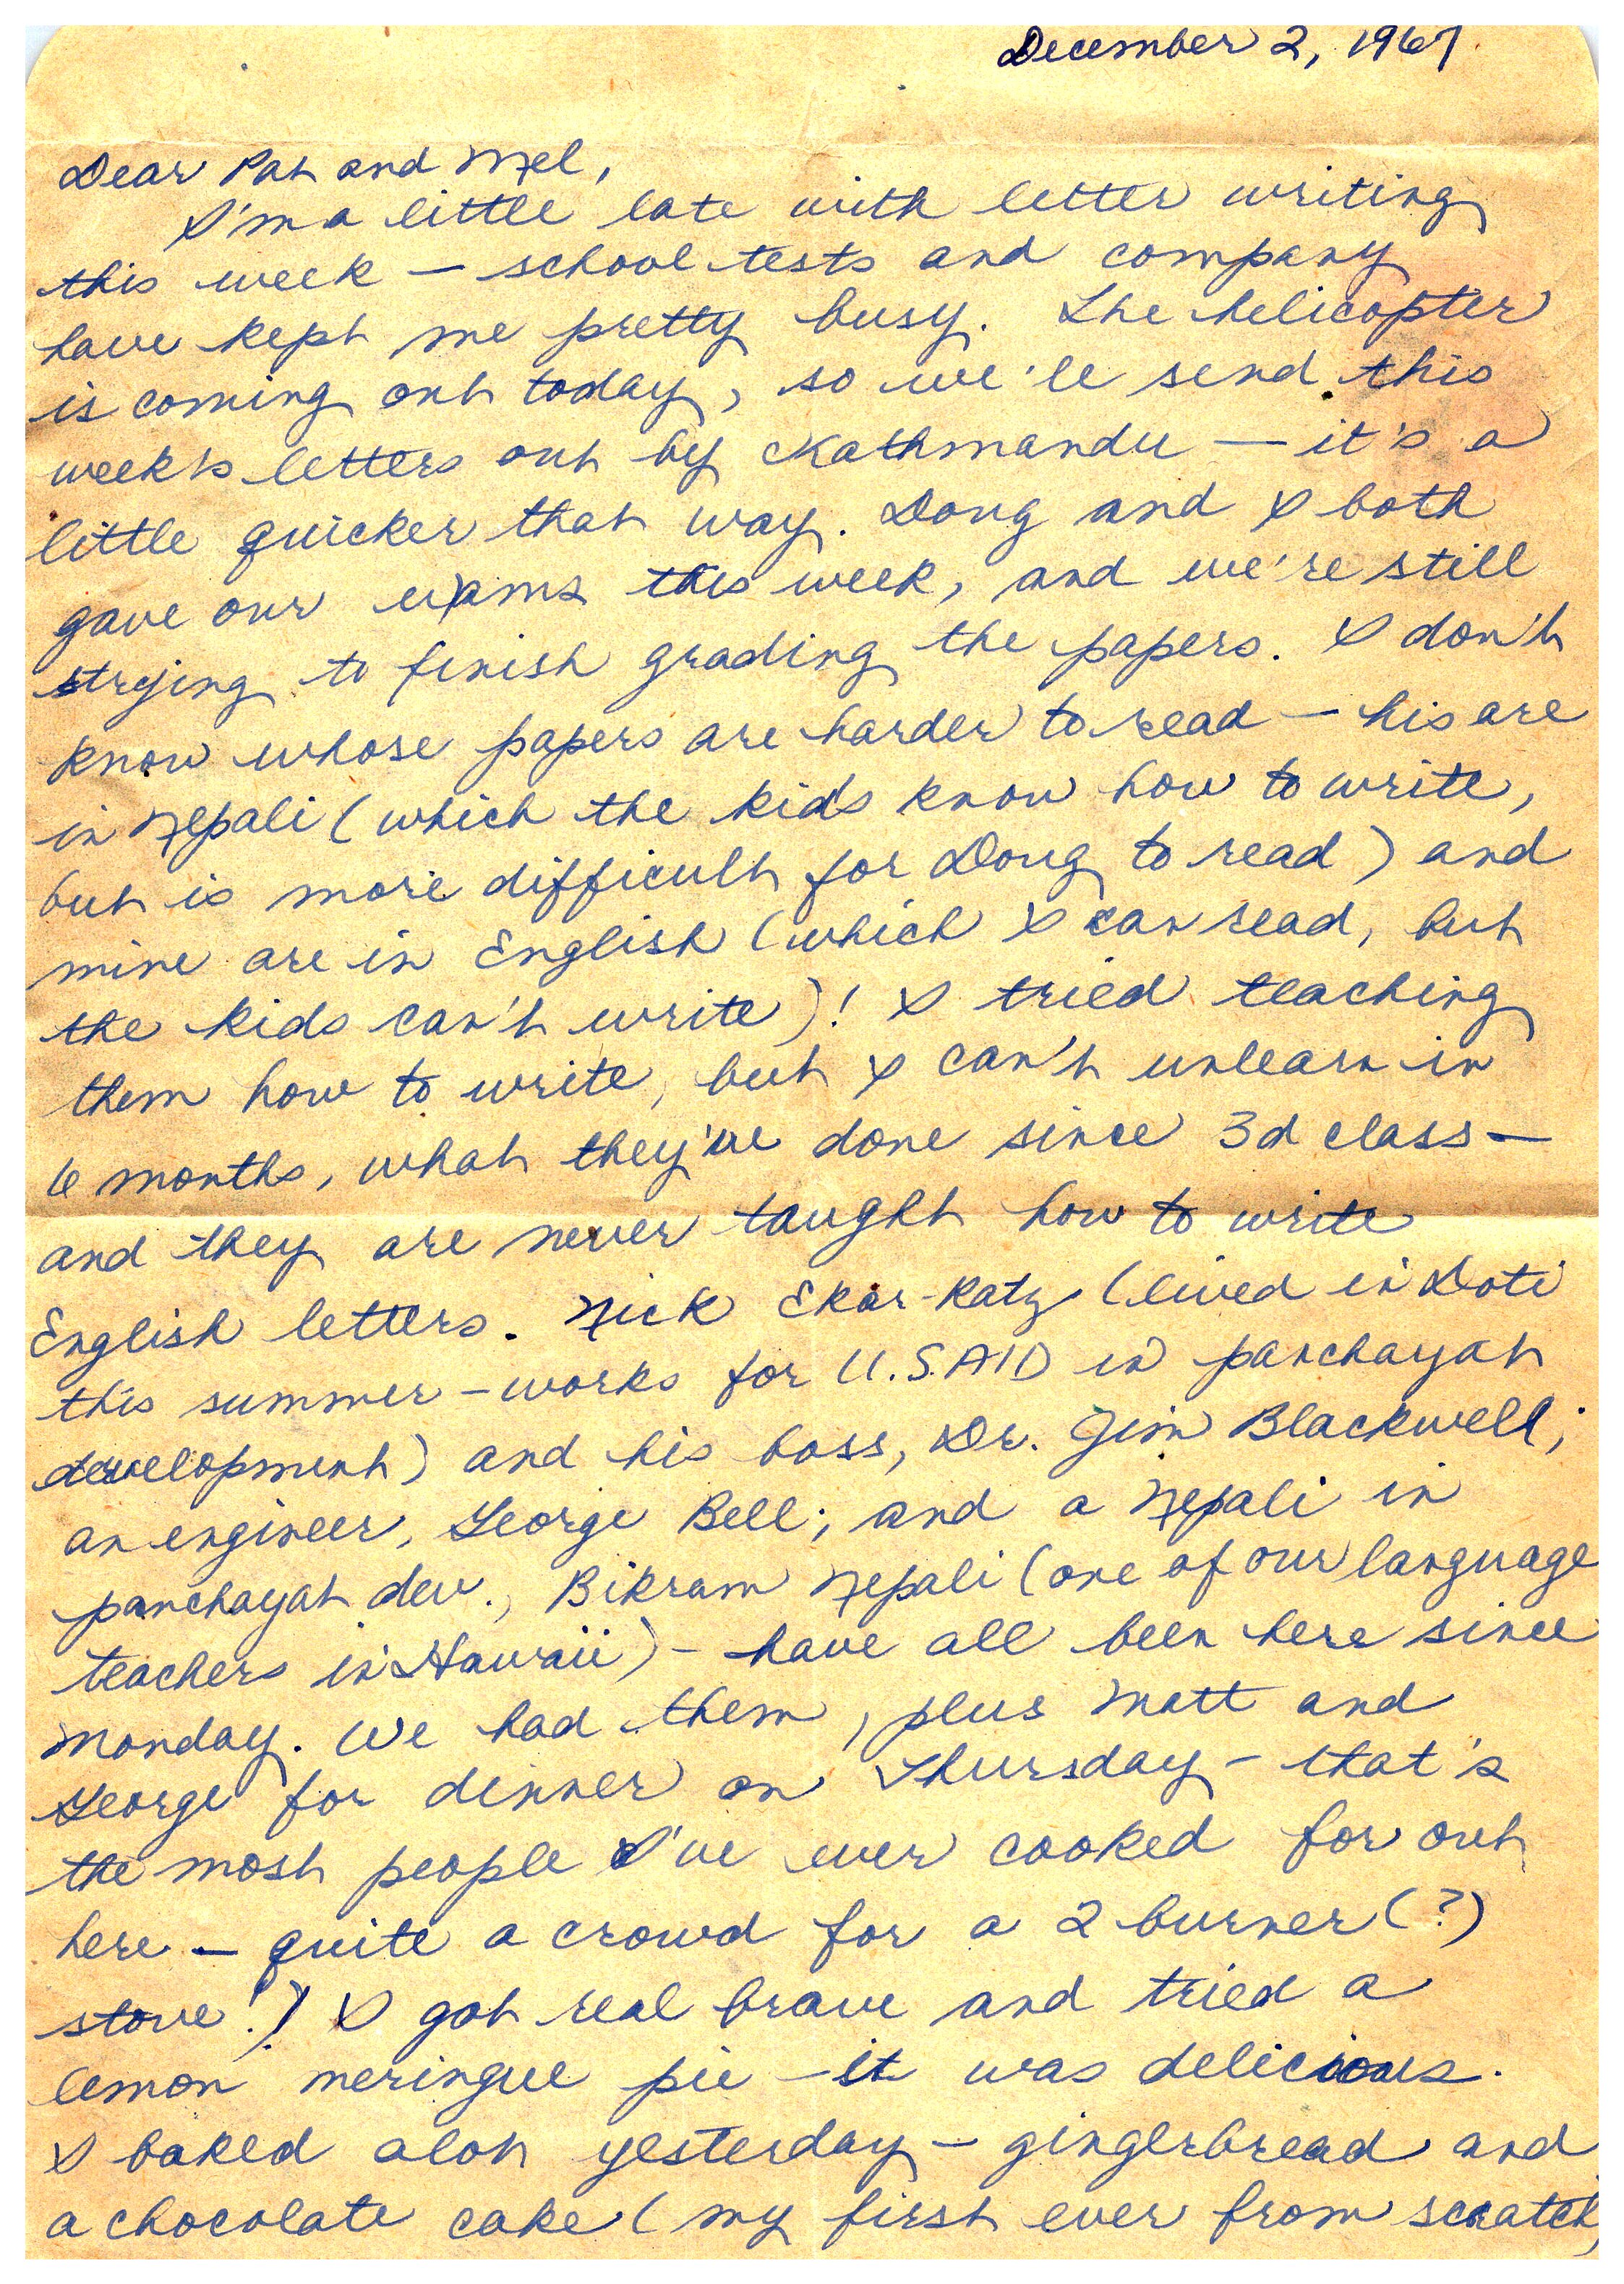 December 2, 1967
Dear Pat and Mel,
I'm a little late with letter writing
this week — school tests and company
have kept me pretty busy. The helicopter
is coming out today, so we'll send this
week's letters out by Kathmandu — it's a
little quicker that way. Doug and I both
gave our exams this week, and we're still
trying to finish grading the papers. I don't
know whose papers are harder to read — his are
in Nepali (which the kids know how to write,
but is more difficult for Doug to read) and
mine are in English (which I can read, but
the kids can't write)! I tried teaching
them how to write, but I can't unlearn in
6 months, what they've done since 3d class —
and they are never taught how to write
English letters. Nick Ekar-Katz (lived in Doti
this summer – works for U.S.AID in panchayat
development) and his boss, Dr. Jim Blackwell;
an engineer, George Bell; and a Nepali in
panchayat dev., Bikram Nepali (one of our language
teachers in Hawaii) – have all been here since
Monday. We had them, plus Matt and
George for dinner on Thursday – that's
the most people I've ever cooked for out
here — quite a crowd for a 2 burner (?)
stove!) I got real brave and tried a
lemon meringue pie – it was delicious.
I baked alot yesterday – gingerbread and
a chocolate cake (my first ever from scratch,